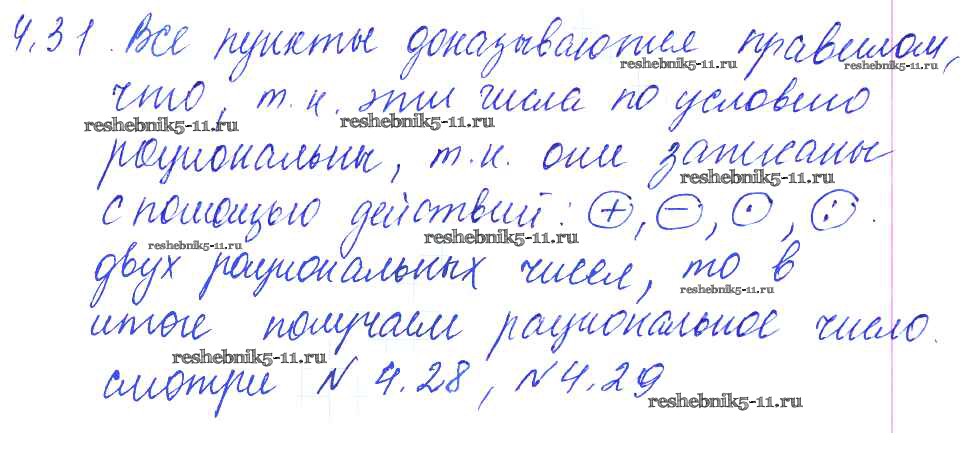 4.31. Все пункты доказываются правилом,
reshebnik5-11.ru
reshebnik5-11.ru
что, т.к. эти числа по условию
reshebnik5-11.ru
reshebnik5-11.ru
рациональны, т.к. они записаны
reshebnik5-11.ru
с помощью действий: +, -, ·, :.
reshebnik5-11.ru
reshebnik5-11.ru
двух рациональных чисел, то в
reshebnik5-11.ru
итоге получаем рациональное число.
reshebnik5-11.ru
смотри N 4.28, N 4.29
reshebnik5-11.ru